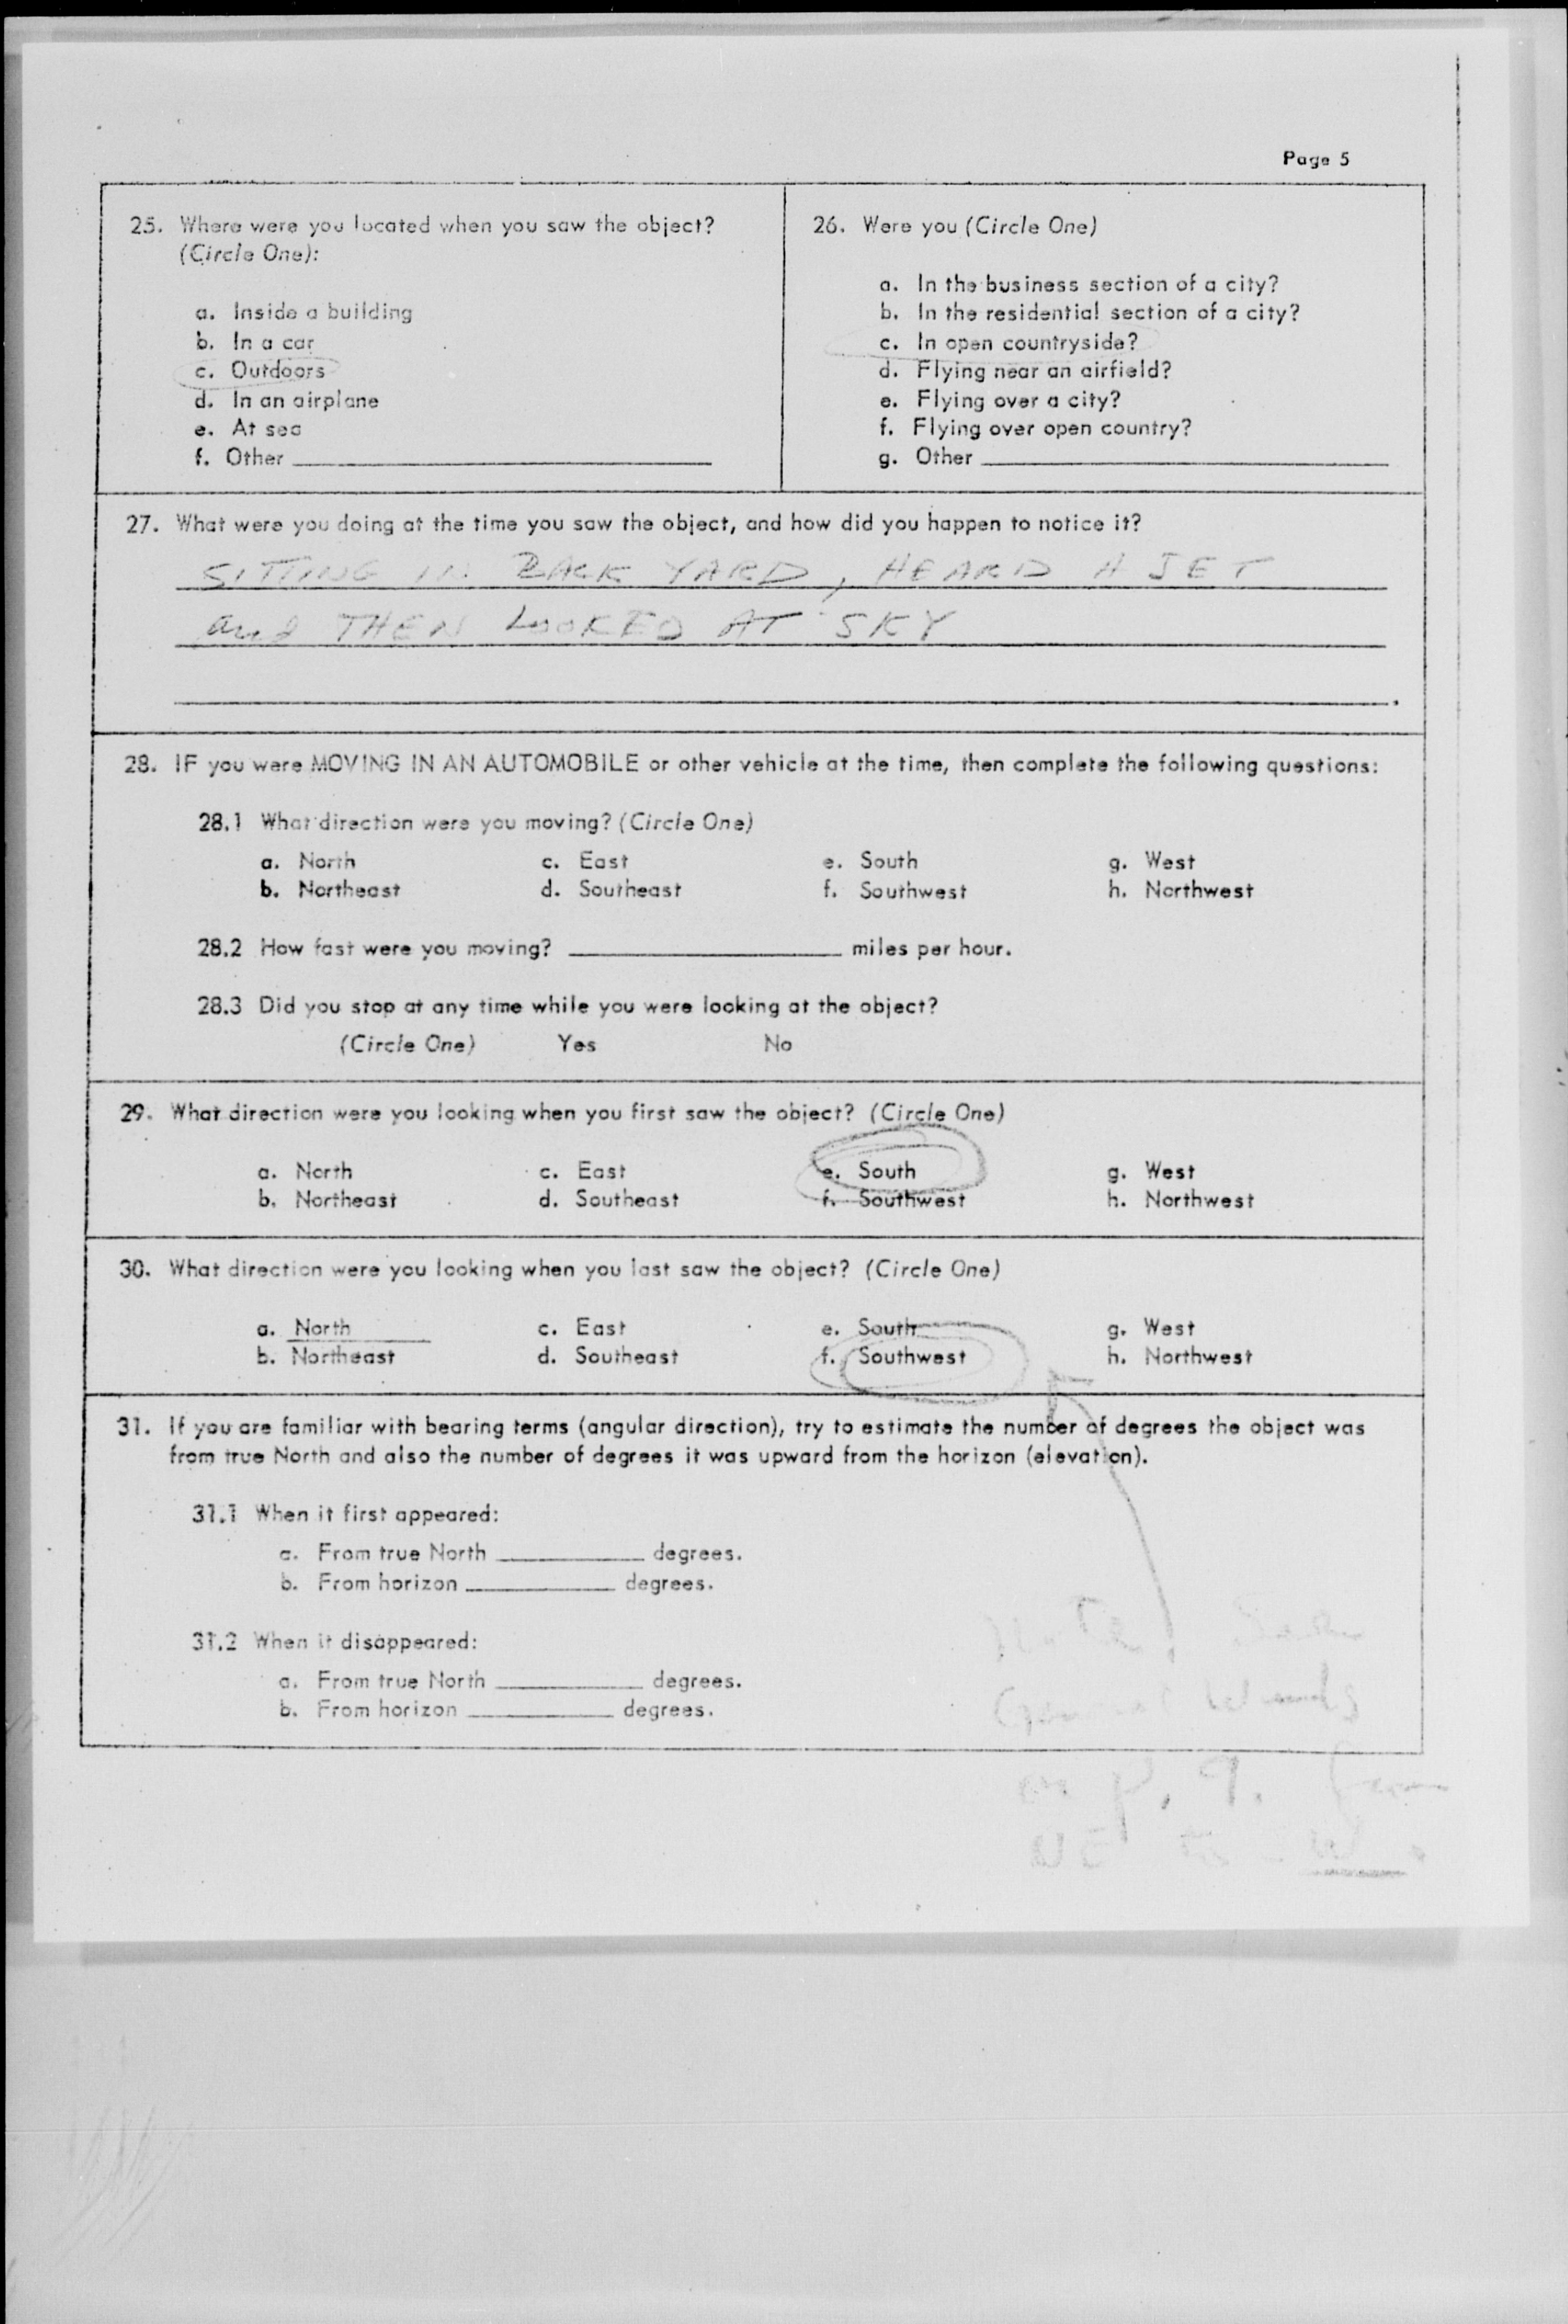 Page 5
25. Where were you located when you saw the object?
(Circle One):
a. Inside a building
b. In a car
c. Outdoors
d. In an airplane
e. At sea
f. Other
26. Were you (Circle One)
a. In the business section of a city?
b. In the residential section of a city?
c. In open countryside?
d. Flying near an airfield?
e. Flying over a city?
f. Flying over open country?
g. Other
27. What were you doing at the time you saw the object, and how did you happen to notice it?
SITTING IN BACK YARD, HEARD A JET
and THEN LOOKED AT SKY
28. IF you were MOVING IN AN AUTOMOBILE or other vehicle at the time, then complete the following questions:
28.1 What direction were you moving? (Circle One)
a. North c. East e. South g. West
b. Northeast d. Southeast f. Southwest h. Northwest
28.2 How fast were you moving? miles per hour.
28.3 Did you stop at any time while you were looking at the object?
(Circle One) Yes No
29. What direction were you looking when you first saw the object? (Circle One)
a. North c. East e. South g. West
b. Northeast d. Southeast f. Southwest h. Northwest
30. What direction were you looking when you last saw the object? (Circle One)
a. North c. East e. South g. West
b. Northeast d. Southeast f. Southwest h. Northwest
31. If you are familiar with bearing terms (angular direction), try to estimate the number of degrees the object was
from true North and also the number of degrees it was upward from the horizon (elevation).
31.1 When it first appeared:
a. From true North degrees.
b. From horizon degrees.
31.2 When it disappeared:
a. From true North degrees.
b. From horizon degrees.